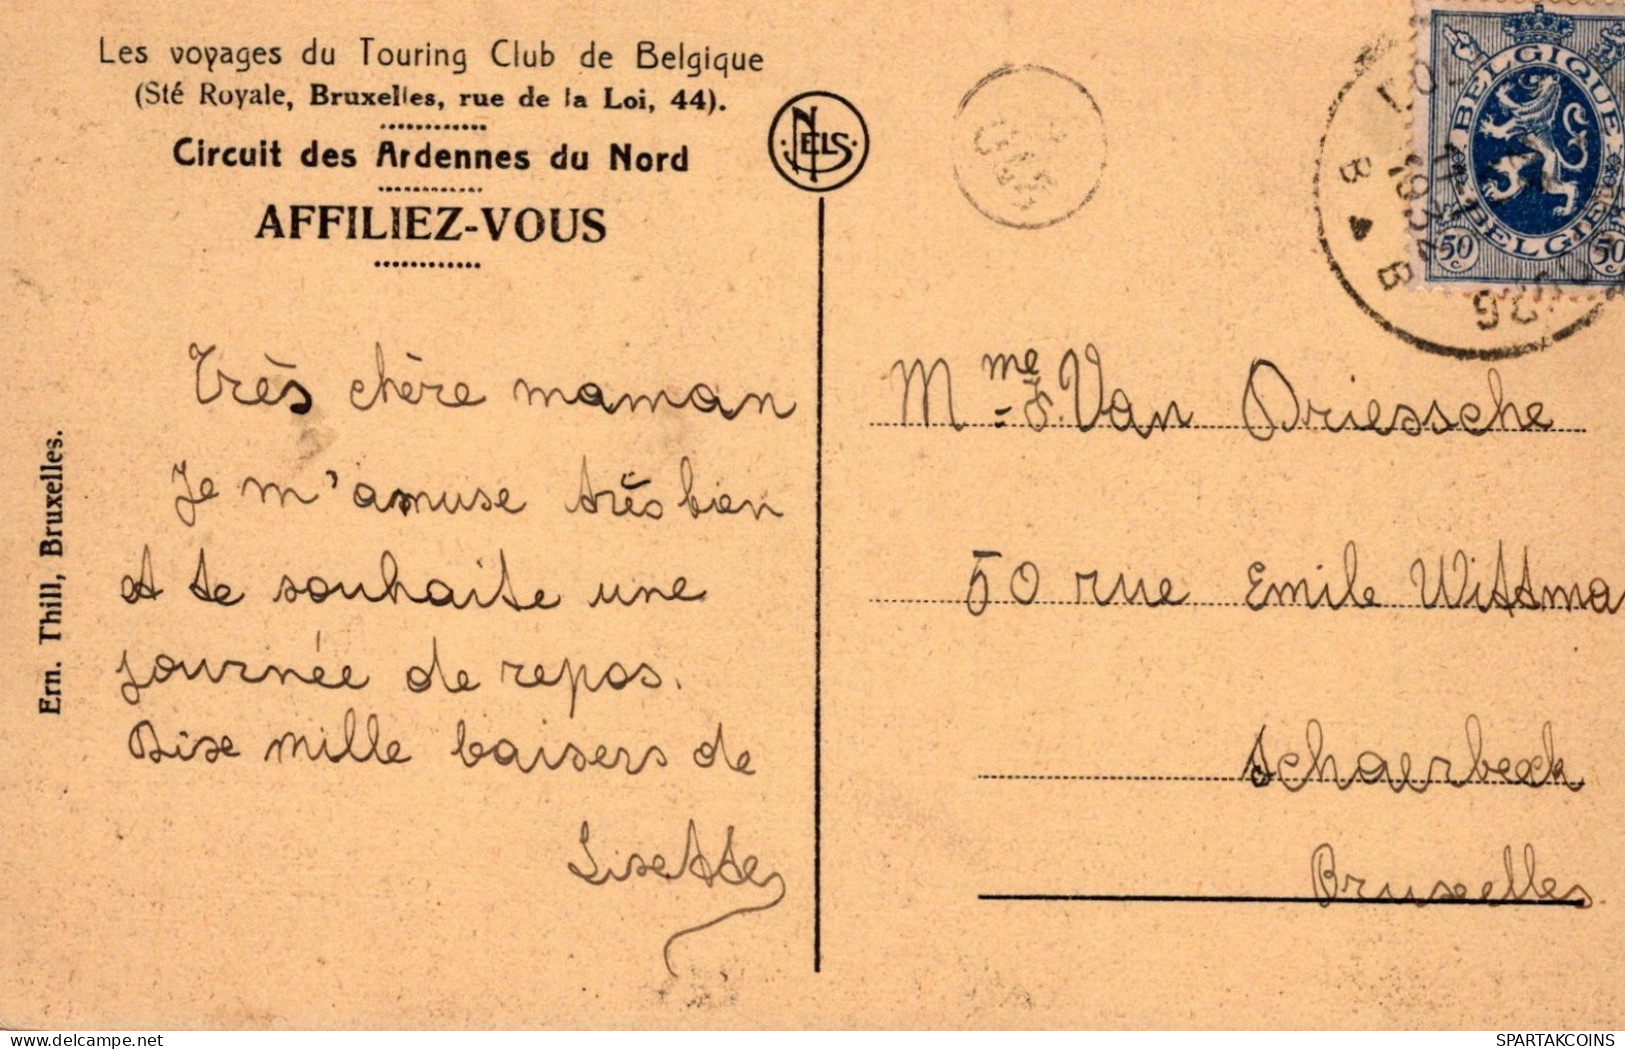 Les voyages du Touring Club de Belgique
(Sté Royale, Bruxelles, rue de la Loi, 44).
Circuit des Ardennes du Nord
AFFILIEZ-VOUS
NELS
Ern. Thill, Bruxelles.
Très chère maman
Je m'amuse très bien
et te souhaite une
journée de repos.
Dixe mille baisers de
Lisette
BELGIQUE
BELGIE
50c 50c
1932
B B
26
Mme F. Van Driessche
50 rue Emile Wittma
Schaerbeek
Bruxelles
SPARTAKCOINS